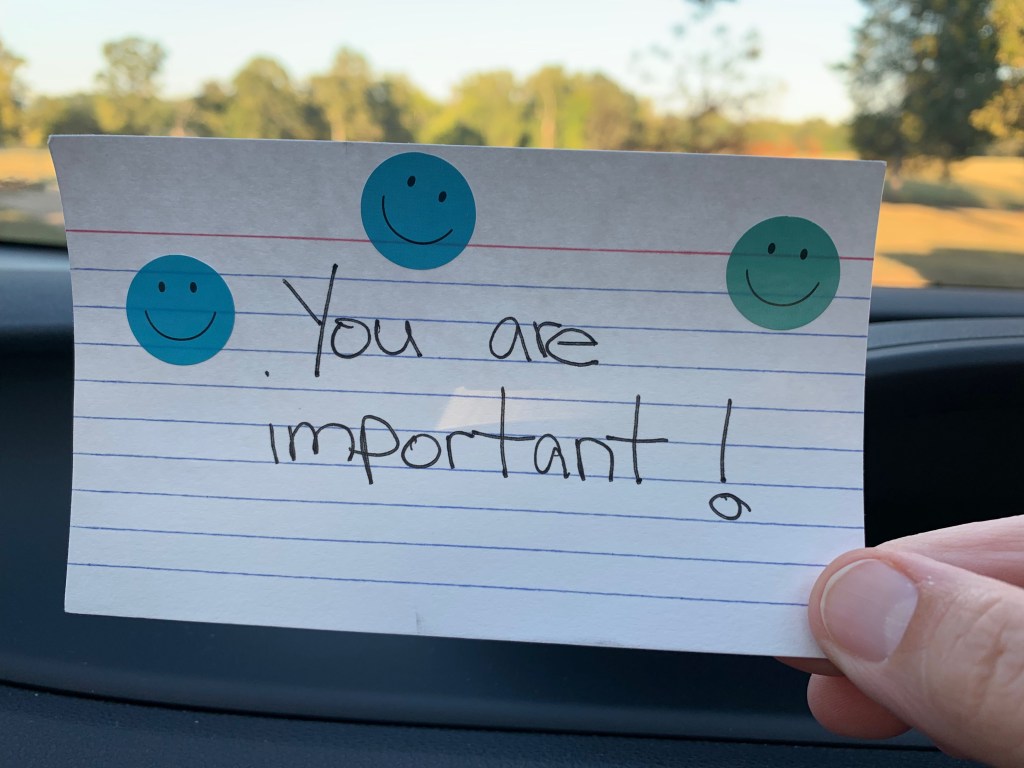 You are
important!